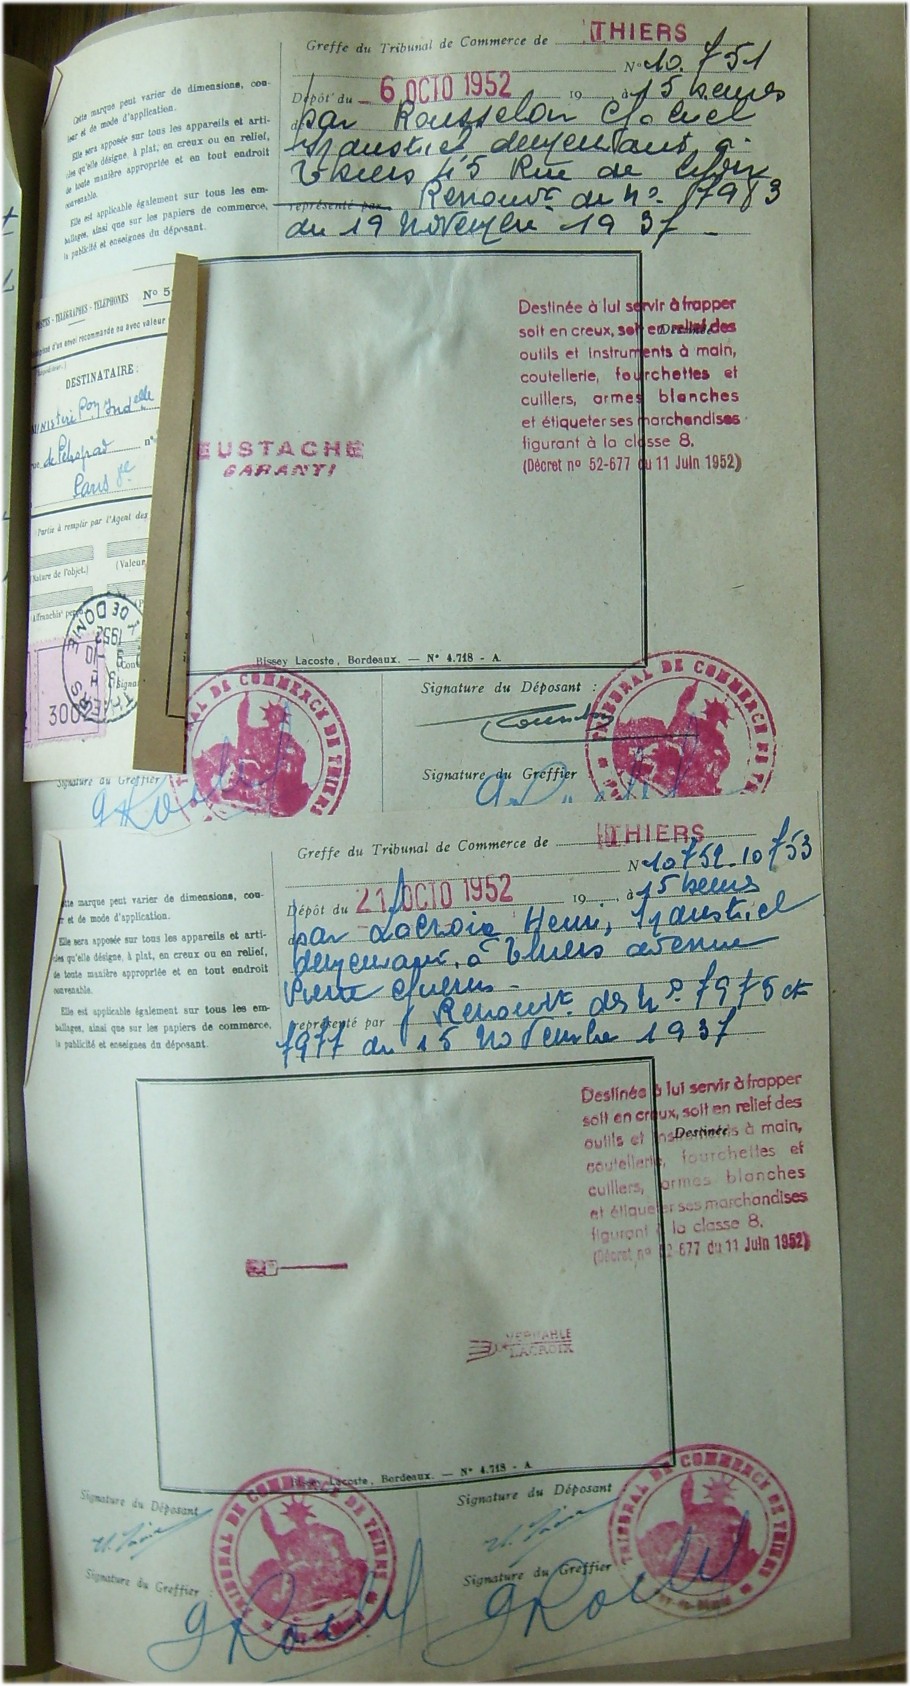 Greffe du Tribunal de Commerce de THIERS
N° 10.751
Dépôt du 6 OCTO 1952 19 à 15 heures
par Rousselon
Industriel demeurant à
Thiers 45 Rue de Lyon
représenté par Renouvt du n° 7983
du 19 Novembre 1937
Cette marque peut varier de dimensions, cou-
leur et de mode d'application.
Elle sera apposée sur tous les appareils et arti-
cles qu'elle désigne, à plat, en creux ou en relief,
de toute manière appropriée et en tout endroit
convenable.
Elle est applicable également sur tous les em-
ballages, ainsi que sur les papiers de commerce,
la publicité et enseignes du déposant.
POSTES - TÉLÉGRAPHES - TÉLÉPHONES N° 5
d'un envoi recommandé ou avec valeur
DESTINATAIRE :
n°
Paris 7e
Partie à remplir par l'Agent des
Nature de l'objet.) (Valeur
Affranchist perçu
DE DOME
1952
300
EUSTACHE
GARANTI
Destinée à lui servir à frapper
soit en creux, soit en relief des
Destinée
outils et instruments à main,
coutellerie, fourchettes et
cuillers, armes blanches
et étiqueter ses marchandises
figurant à la classe 8.
(Décret n° 52-677 du 11 Juin 1952)
Bissey Lacoste, Bordeaux. — N° 4.718 - A.
Signature du Déposant :
TRIBUNAL DE COMMERCE DE THIERS
TRIBUNAL DE COMMERCE DE TH
Signature du Greffier
Signature du Greffier
Greffe du Tribunal de Commerce de THIERS
N° 10752-10753
Dépôt du 21 OCTO 1952 19 à 15 heures
par Lacroix Henri, Industriel
demeurant à Thiers avenue
Pierre Guérin
représenté par Renouvt des n°s 7975 et
7977 du 15 Novembre 1937
Cette marque peut varier de dimensions, cou-
leur et de mode d'application.
Elle sera apposée sur tous les appareils et arti-
cles qu'elle désigne, à plat, en creux ou en relief,
de toute manière appropriée et en tout endroit
convenable.
Elle est applicable également sur tous les em-
ballages, ainsi que sur les papiers de commerce,
la publicité et enseignes du déposant.
Destinée à lui servir à frapper
soit en creux, soit en relief des
outils et instruments à main,
Destinée
coutellerie, fourchettes et
cuillers, armes blanches
et étiqueter ses marchandises
figurant à la classe 8.
(Décret n° 52-677 du 11 Juin 1952)
VERITABLE
LACROIX
Bissey Lacoste, Bordeaux. — N° 4.718 - A
Signature du Déposant
Signature du Déposant
TRIBUNAL DE COMMERCE DE THIERS
Puy-de-Dôme
TRIBUNAL DE COMMERCE DE THIERS
Puy-de-Dôme
Signature du Greffier :
Signature du Greffier